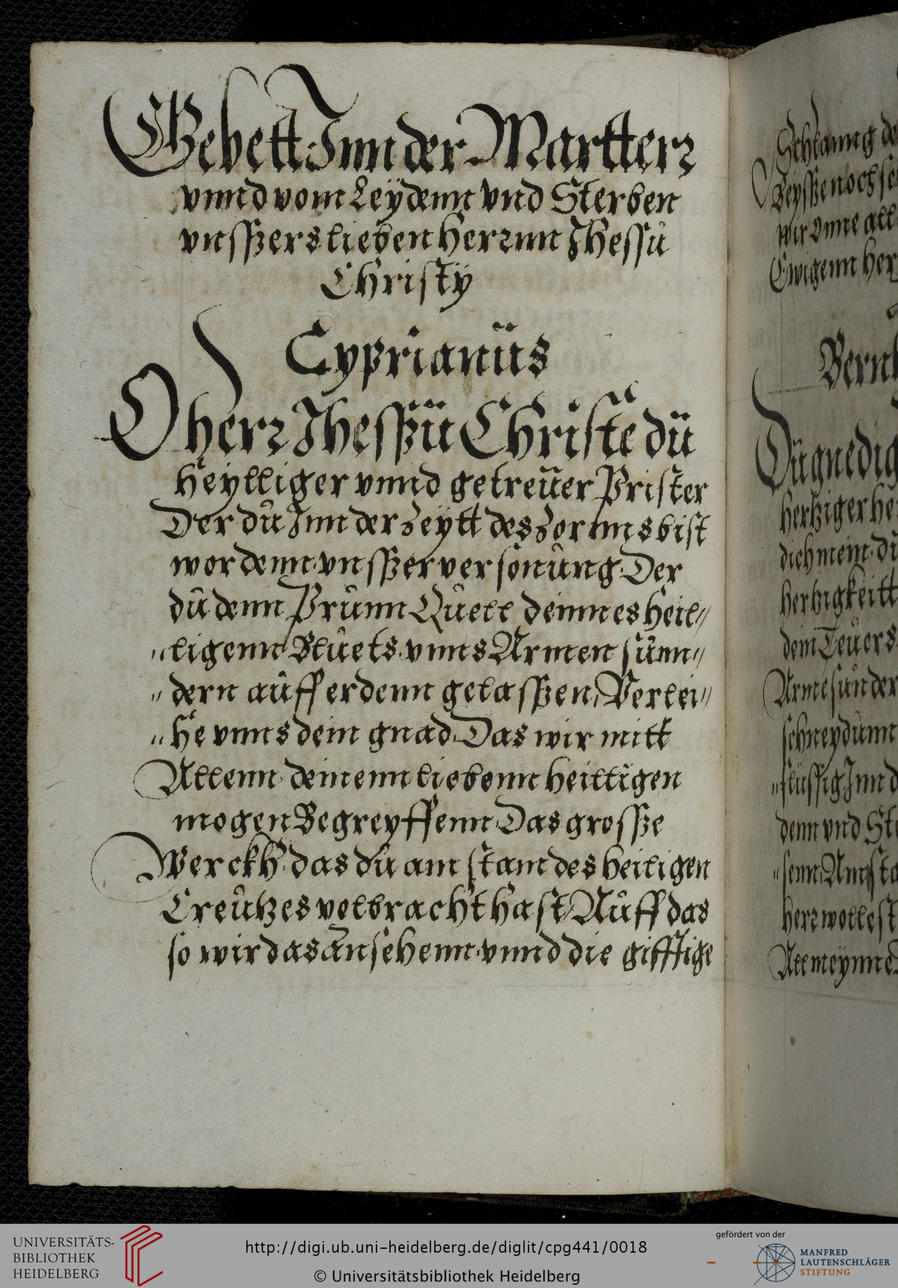 Gebett Inn der Martterz
vnnd vom Leydenn vnd Sterben
vnsßers lieben Herznn Jhessu
Christÿ
Cyprianüs
O herz Jhesßü Christe dü
Heylliger vnnd getreüer Prister
Der dü Inn der Zeytt des Zornns bist
wordenn vnsßer versönüng Der
dü denn Prünn Qüell deinnes heil〃
〃ligenn Blüets vnns Armen sünn〃
〃dern aüff erdenn gelasßen, Verlei〃
〃he vnns dein gnad Das wir mitt
Allenn deinenn liebenn heilligen
mogen Begreyffenn Das grosße
Werckh das dü am stam des heiligen
Creützes volbracht hast Aüff das
so wir das ansehenn vnnd die gifftige
Schlanng de
Beysße noch se
wir vnne all
Ewigenn Her
Bernh
Dü gnedig
hertziger he
dich mein dü
hertzigkeitt
dein Teüers
Arme sünder
schneydünn
〃flüssig Inn d
denn vnd St
〃senn Am sta
herz wollest
All meynne
UNIVERSITÄTS-
BIBLIOTHEK
HEIDELBERG
http://digi.ub.uni-heidelberg.de/diglit/cpg441/0018
© Universitätsbibliothek Heidelberg
gefördert von der
MANFRED
LAUTENSCHLÄGER
STIFTUNG